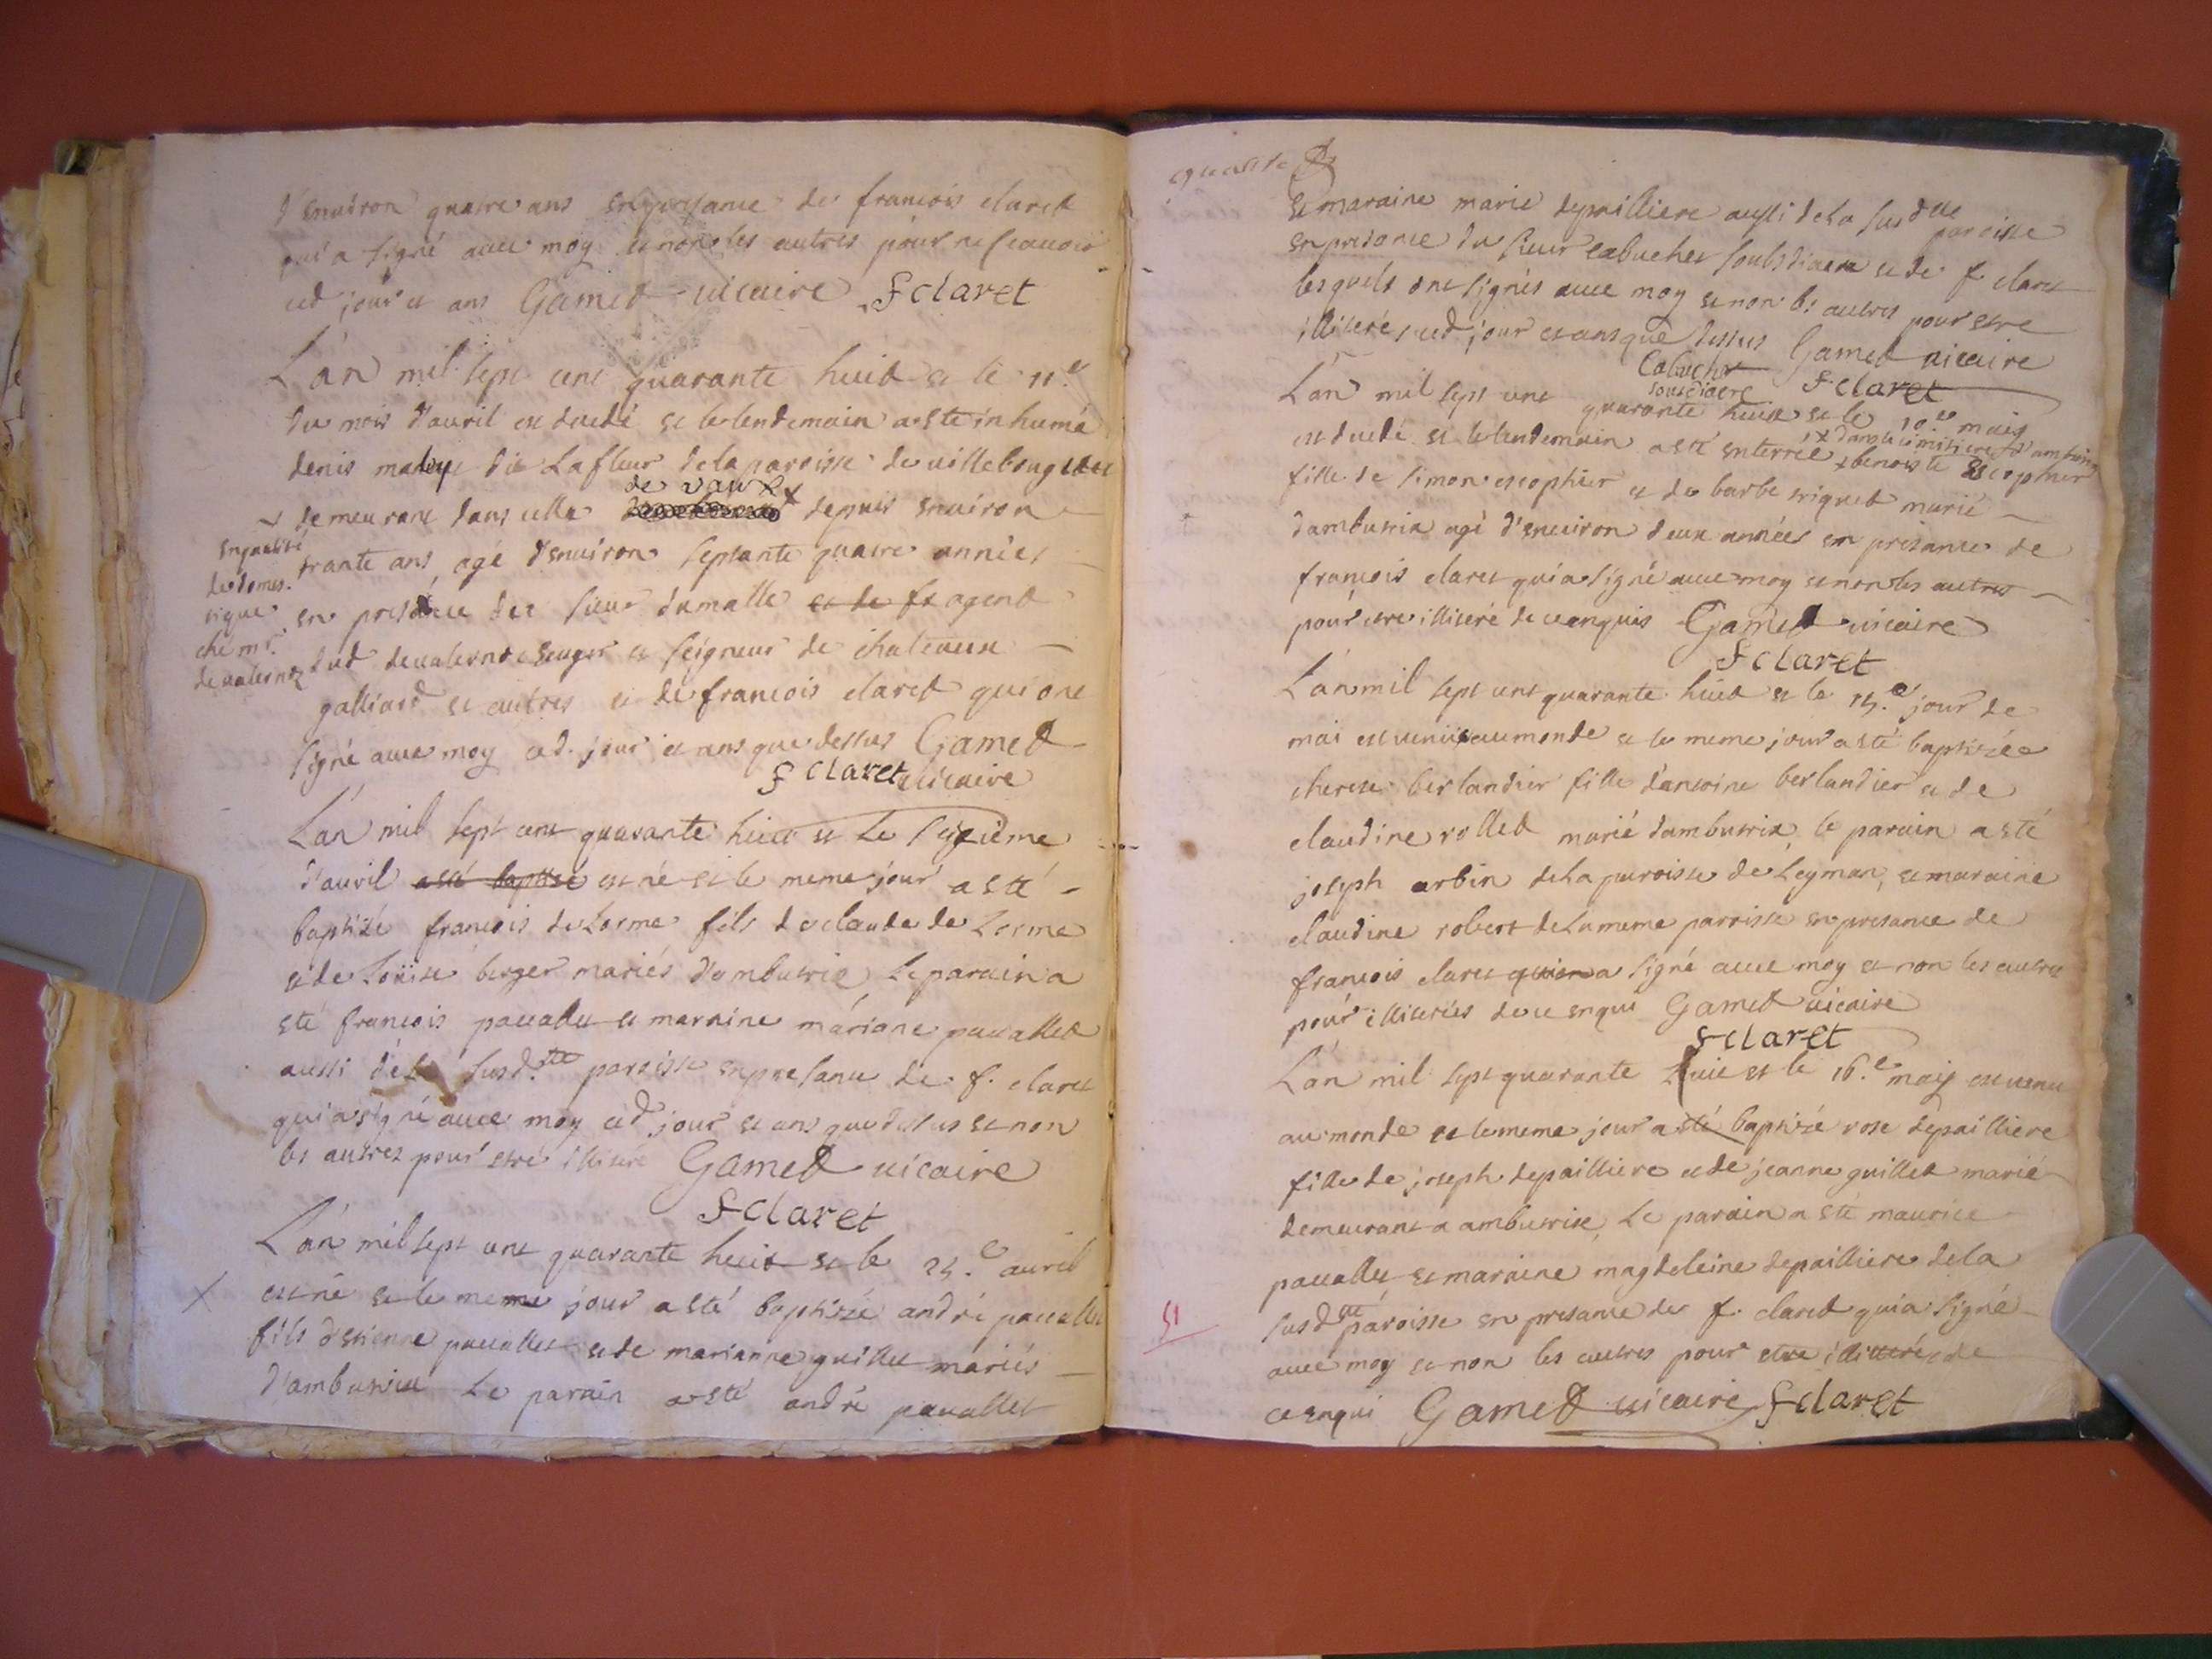 d'environ quatre ans en presance de francois claret
qui a signé avec moy et non les autres pour ne scavoir
ced jour et ans Gamet vicaire f claret
L'an mil sept cent quarante huit et le 11.e
du mois d'avril est decedé et le lendemain a esté inhumé
denis dit Lafleur de la paroisse de
de vaux
demeurant dans celle x depuis environ
en qualité
de domes.
tique
ché mr.
de valernoz
trante ans, agé d'environ septante quatre années
en presance de sieur dumalle et de fr agent
dud de valernod et seigneur de
galliard et autres et de francois claret qui ont
signé avec moy ced. jour et ans que dessus Gamet
f claret vicaire
L'an mil sept cent quarante huit et Le sezieme
d'avril a esté baptisé est né et le meme jour a esté
baptizé francois de Lorme fils de claude de Lorme
et de Loüise berger mariés d'ambutrix Le parain a
esté francois pavallet et maraine mariane pavallet
aussi de la susd.tte paroisse en presance de f. claret
qui a signé avec moy ced jour et ans que dessus et non
les autres pour estre illiteré Gamet vicaire
f claret
L'an mil sept cent quarante huit et le 25.e avril
x est né et le meme jour a esté baptizée andré pavallet
fils d'estienne pavallet et de marianne guillet mariés
d'ambutrix Le parain a esté andré pavallet
quarante
et maraine marie depailliere aussi de la susdtte paroisse
en presance du sieur cabuchet soubsdiacre et de f. claret
lesquels ont signés avec moy et non les autres pour estre
illiterés ced jour et ans que dessus Gamet vicaire
Cabuchet
sousdiacre f claret
L'an mil sept cent quarante huit et le 10.e may
est decedé et le lendemain a esté enterrée x dans le cimitiere d'ambutrix
x benoiste Escophier
fille de simon escophier et de barbe triquet marié
d'ambutrix agé d'environ deux années en presance de
francois claret qui a signé avec moy et non les autres
pour estre illiteré de ce enquis Gamet vicaire
f claret
L'an mil sept cent quarante huit et le 15.e jour de
mai est venüe au monde et le meme jour a esté baptizée
therese berlandier fille d'antoine berlandier et de
claudine rollet marié d'ambutrix, le parain a esté
joseph arbin de la paroisse de Leyman, et maraine
claudine robert de la meme parroisse en presance de
francois claret qui en a signé avec moy et non les autres
pour illiterés de ce enqui Gamet vicaire
f claret
L'an mil sept quarante huit et le 16.e may est venu
au monde et le meme jour a esté baptizé rose depailliere
fille de joseph depailliere et de jeanne guillet marié
demeurant a ambutrix, Le parain a esté maurice
pavallet et maraine magdeleine depailliere de la
susdtte paroisse en presance de f. claret qui a signé
avec moy et non les autres pour etre illiterés de
ce enqui Gamet vicaire f claret
51